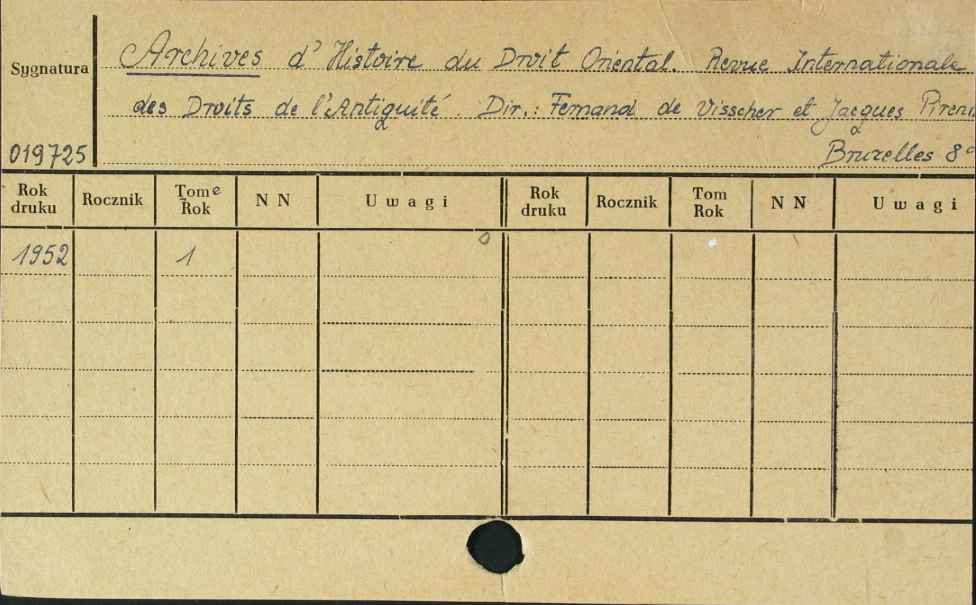 Archives d'Histoire du Droit Oriental. Revue Internationale
Sygnatura
des Droits de l'Antiquité. Dir.: Fernand de Visscher et Jacques Piren
019725
Bruxelles 8°
Rok druku Rocznik Tome Rok NN Uwagi Rok druku Rocznik Tom Rok NN Uwagi
1952 1